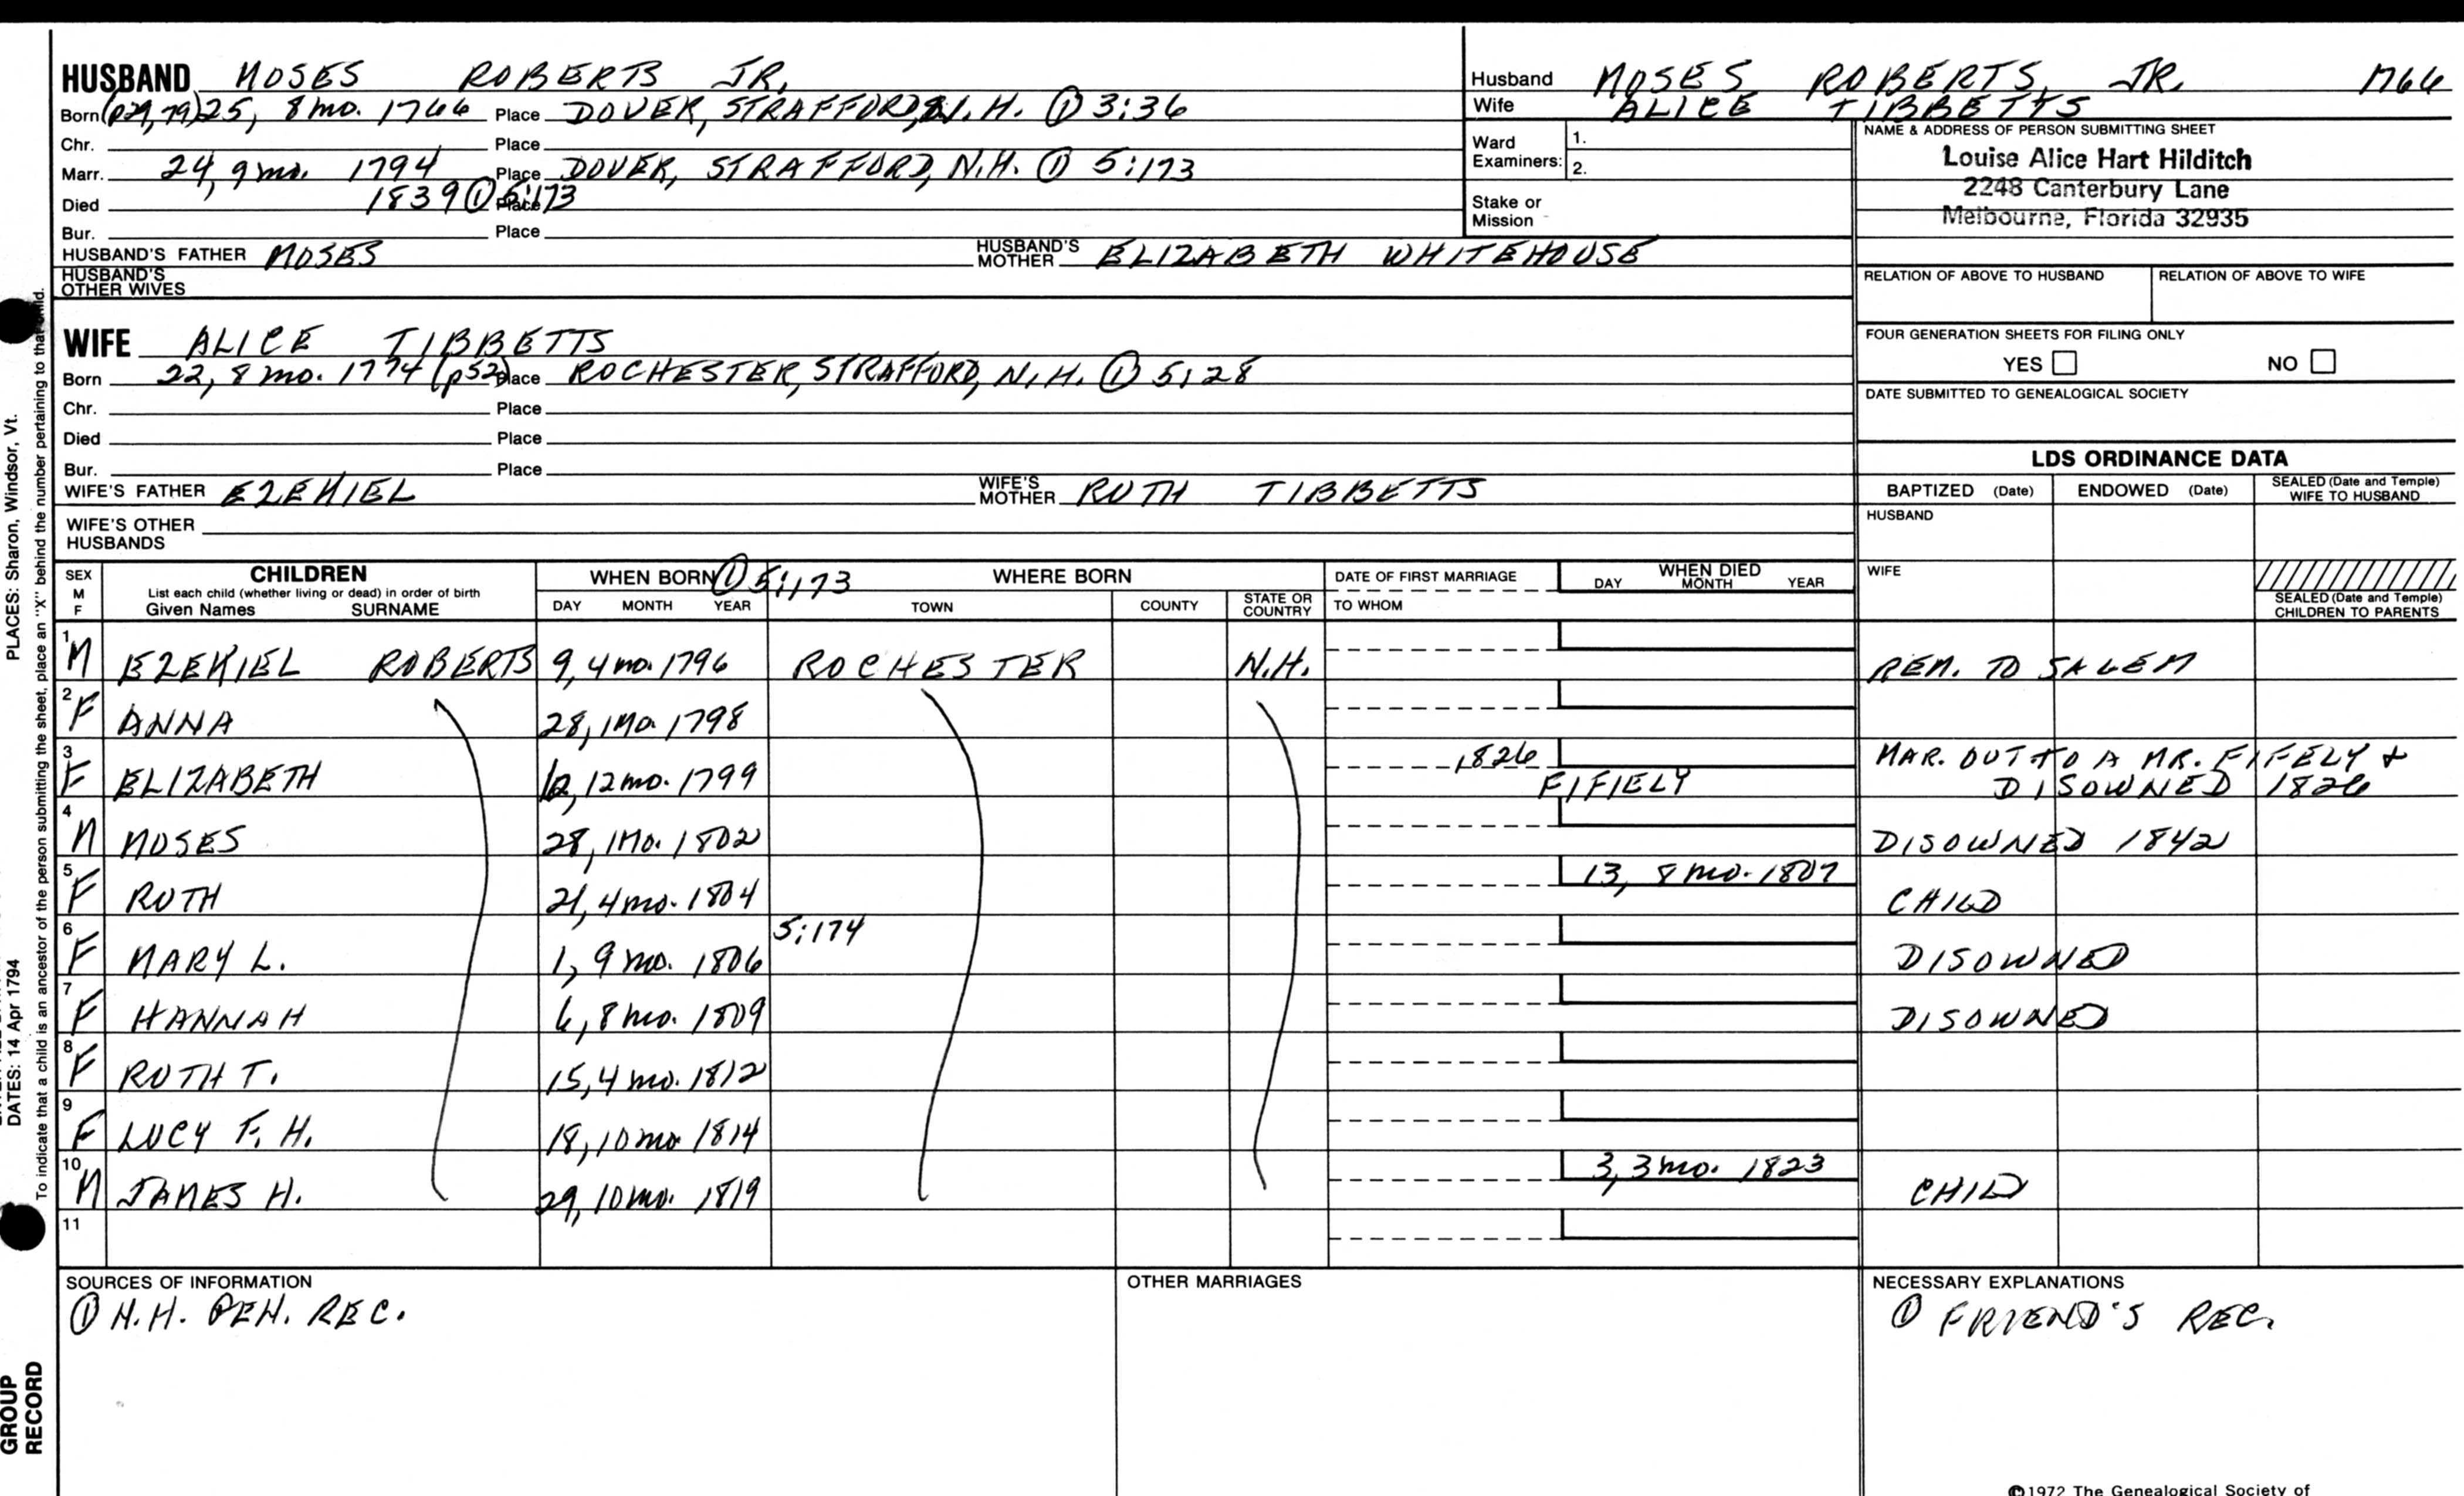 HUSBAND MOSES ROBERTS JR.
Born (p29,79) 25, 8 mo. 1766 Place DOVER, STRAFFORD, N.H. ① 3:36
Chr. Place
Marr. 24, 9 mo. 1794 Place DOVER, STRAFFORD, N.H. ① 5:173
Died 1839 ① 5:173 Place
Bur. Place
HUSBAND'S FATHER MOSES HUSBAND'S MOTHER ELIZABETH WHITEHOUSE
HUSBAND'S OTHER WIVES
Husband MOSES ROBERTS, JR. 1766
Wife ALICE TIBBETTS
Ward Examiners: 1.
2.
Stake or Mission
NAME & ADDRESS OF PERSON SUBMITTING SHEET
Louise Alice Hart Hilditch
2248 Canterbury Lane
Melbourne, Florida 32935
RELATION OF ABOVE TO HUSBAND RELATION OF ABOVE TO WIFE
FOUR GENERATION SHEETS FOR FILING ONLY
YES NO
DATE SUBMITTED TO GENEALOGICAL SOCIETY
WIFE ALICE TIBBETTS
Born 22, 8 mo. 1774 (p52) Place ROCHESTER, STRAFFORD, N.H. ① 5:28
Chr. Place
Died Place
Bur. Place
WIFE'S FATHER EZEKIEL WIFE'S MOTHER RUTH TIBBETTS
WIFE'S OTHER HUSBANDS
LDS ORDINANCE DATA
BAPTIZED (Date) ENDOWED (Date) SEALED (Date and Temple) WIFE TO HUSBAND
HUSBAND
WIFE
SEALED (Date and Temple) CHILDREN TO PARENTS
SEX M F
CHILDREN
List each child (whether living or dead) in order of birth
Given Names SURNAME
WHEN BORN ① 5:173
DAY MONTH YEAR
WHERE BORN
TOWN COUNTY STATE OR COUNTRY
DATE OF FIRST MARRIAGE
TO WHOM
WHEN DIED
DAY MONTH YEAR
1 M EZEKIEL ROBERTS 9, 4 mo. 1796 ROCHESTER N.H. REM. TO SALEM
2 F ANNA 28, 1 MO. 1798
3 F ELIZABETH 12, 12 mo. 1799 1826 FIFIELY MAR. OUT TO A MR. FIFELY +
DISOWNED 1826
4 M MOSES 28, 1 MO. 1802 DISOWNED 1842
5 F RUTH 21, 4 mo. 1804 13, 8 mo. 1807 CHILD
6 F MARY L. 1, 9 mo. 1806 5:174 DISOWNED
7 F HANNAH 6, 8 mo. 1809 DISOWNED
8 F RUTH T. 15, 4 mo. 1812
9 F LUCY F. H. 18, 10 mo 1814
10 M JAMES H. 29, 10 mo. 1819 3, 3 mo. 1823 CHILD
11
SOURCES OF INFORMATION
① N.H. GEN. REC.
OTHER MARRIAGES
NECESSARY EXPLANATIONS
① FRIEND'S REC.
©1972 The Genealogical Society of
PLACES: Sharon, Windsor, Vt.
DATES: 14 Apr 1794
To indicate that a child is an ancestor of the person submitting the sheet, place an "X" behind the number pertaining to that child.
GROUP
RECORD